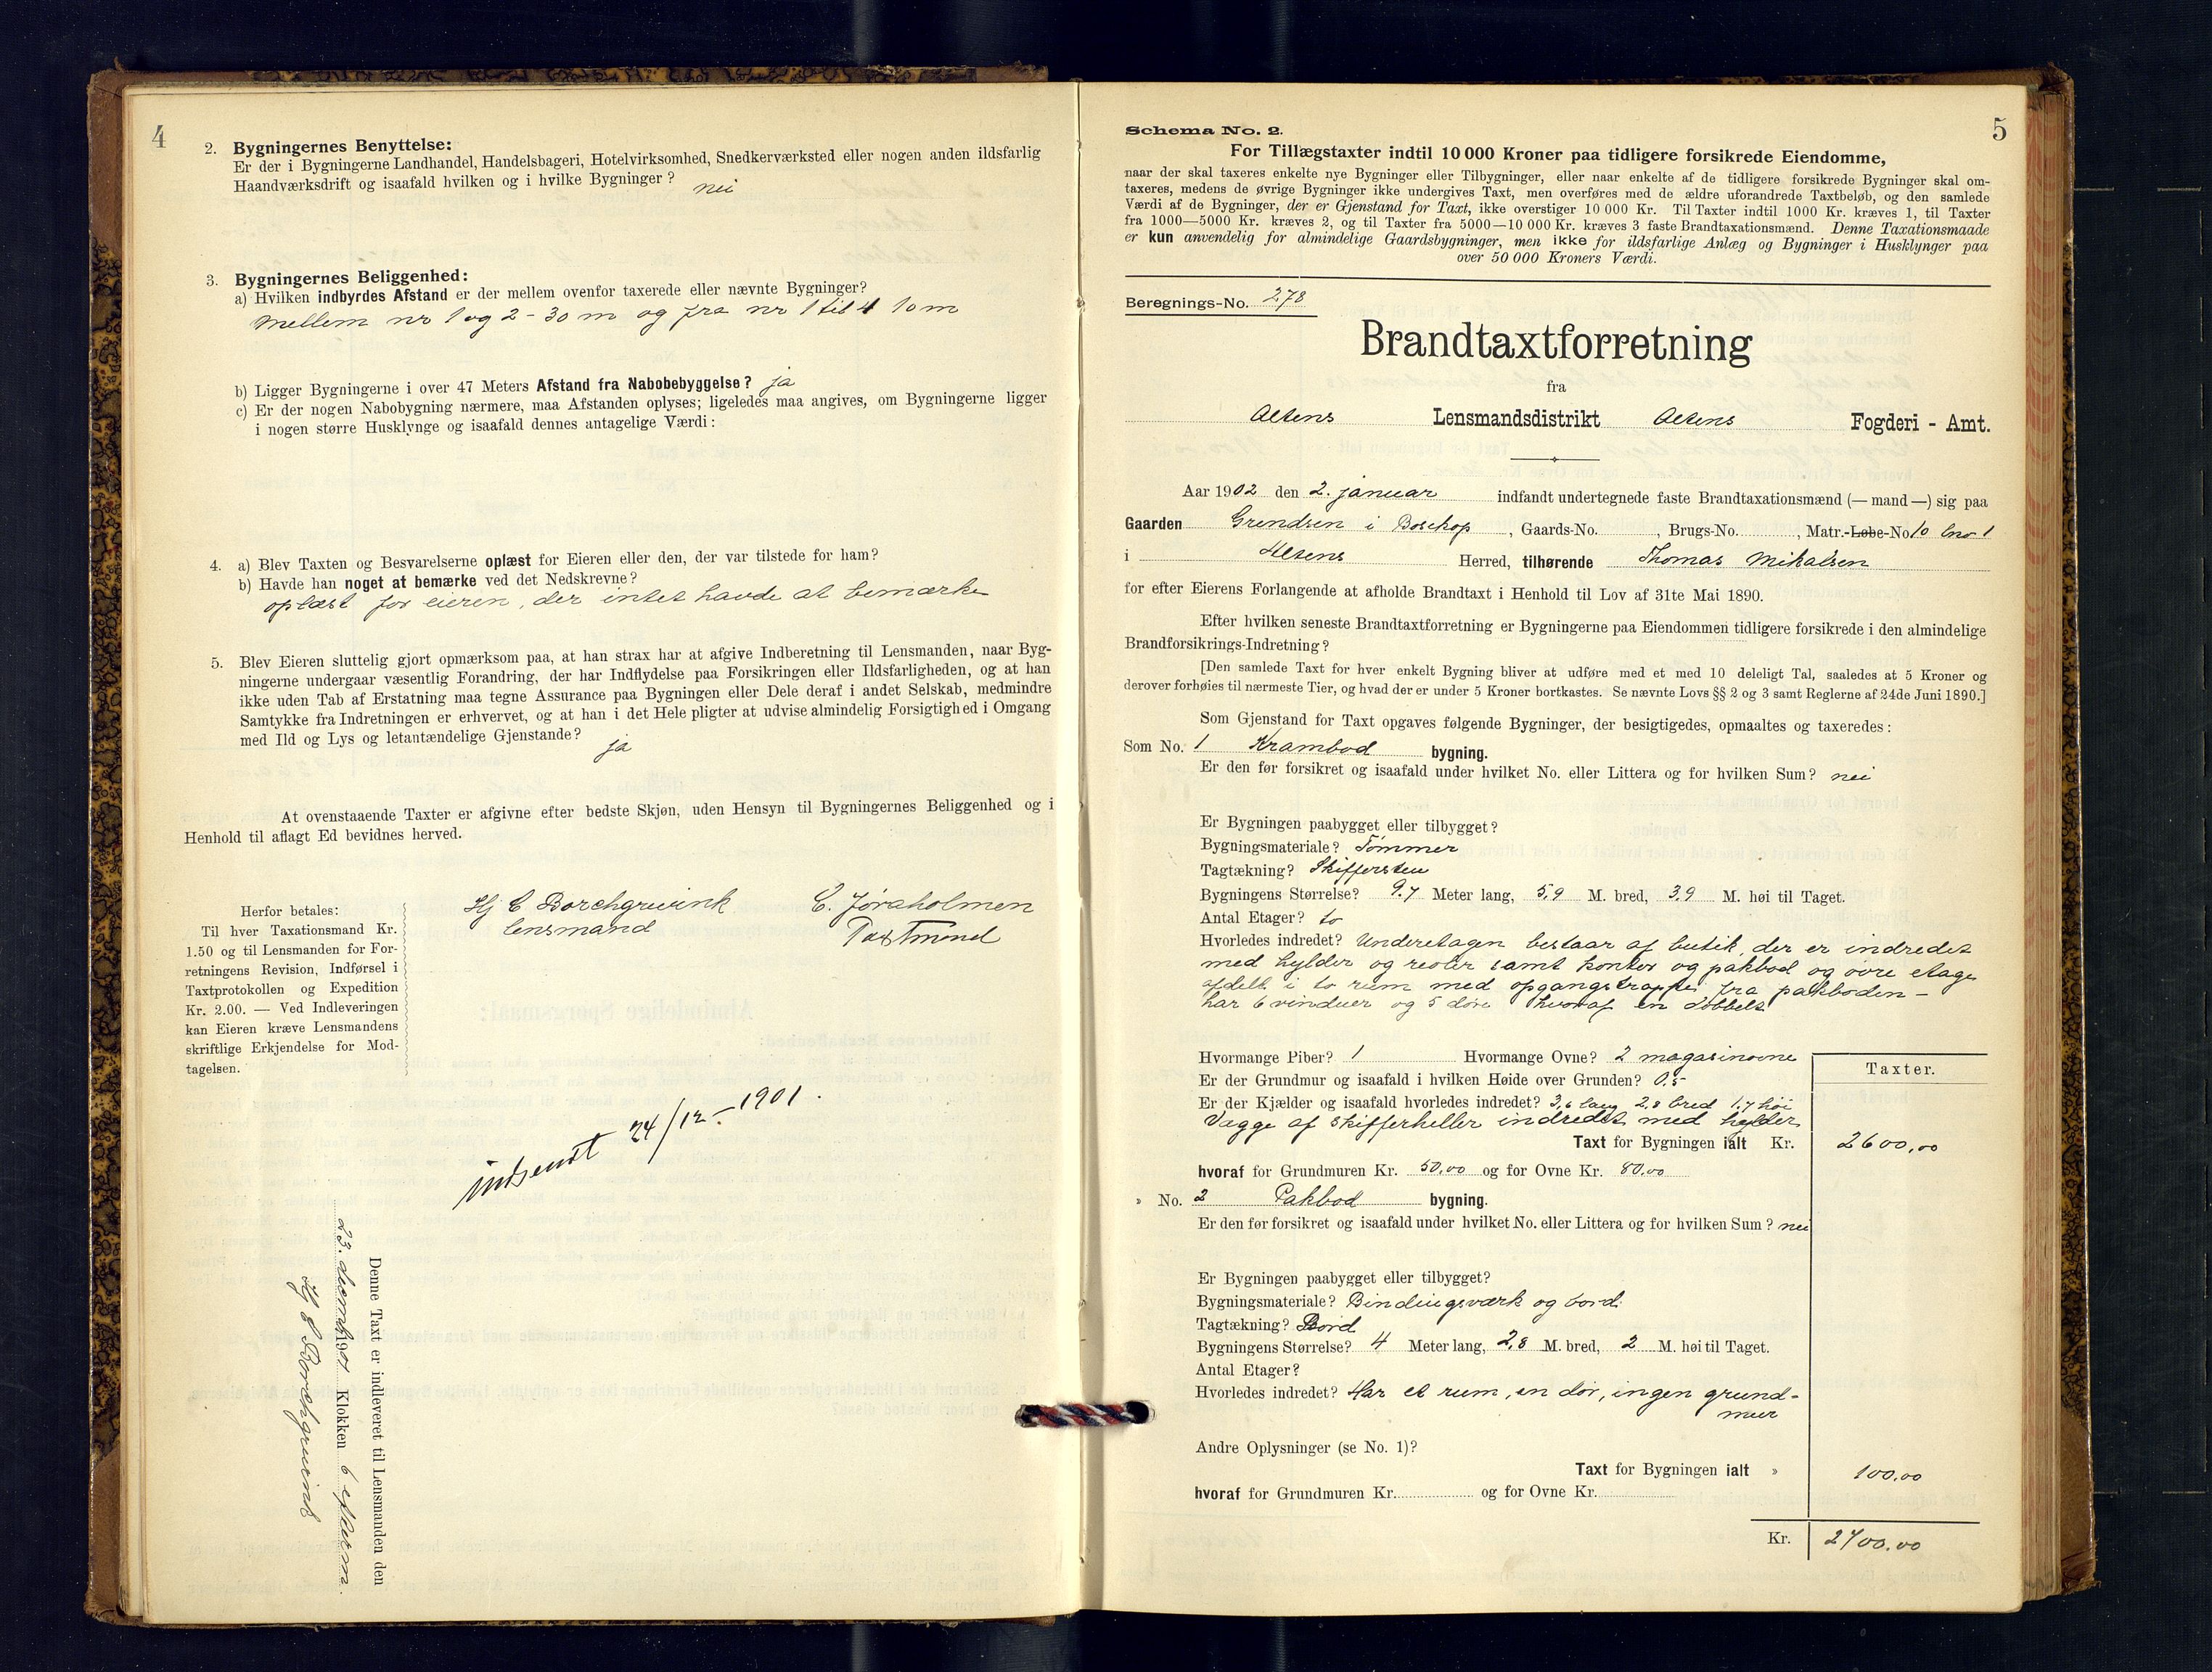 4
2. Bygningernes Benyttelse:
Er der i Bygningerne Landhandel, Handelsbageri, Hotelvirksomhed, Snedkerværksted eller nogen anden ildsfarlig
Haandværksdrift og isaafald hvilken og i hvilke Bygninger? nei
3. Bygningernes Beliggenhed:
a) Hvilken indbyrdes Afstand er der mellem ovenfor taxerede eller nævnte Bygninger?
Mellem nr 1 og 2 - 30 m og fra nr 1 til 4 10 m
b) Ligger Bygningerne i over 47 Meters Afstand fra Nabobebyggelse? ja
c) Er der nogen Nabobygning nærmere, maa Afstanden oplyses; ligeledes maa angives, om Bygningerne ligger
i nogen større Husklynge og isaafald dennes antagelige Værdi:
4. a) Blev Taxten og Besvarelserne oplæst for Eieren eller den, der var tilstede for ham?
b) Havde han noget at bemærke ved det Nedskrevne?
oplæst for eieren, der intet havde at bemærke
5. Blev Eieren sluttelig gjort opmærksom paa, at han strax har at afgive Indberetning til Lensmanden, naar Byg-
ningerne undergaar væsentlig Forandring, der har Indflydelse paa Forsikringen eller Ildsfarligheden, og at han
ikke uden Tab af Erstatning maa tegne Assurance paa Bygningen eller Dele deraf i andet Selskab, medmindre
Samtykke fra Indretningen er erhvervet, og at han i det Hele pligter at udvise almindelig Forsigtighed i Omgang
med Ild og Lys og letantændelige Gjenstande? ja
At ovenstaaende Taxter er afgivne efter bedste Skjøn, uden Hensyn til Bygningernes Beliggenhed og i
Henhold til aflagt Ed bevidnes herved.
Hj C Borchgrevink
lensmand
E. Jøraholmen
Taxtmend
Herfor betales:
Til hver Taxationsmand Kr.
1.50 og til Lensmanden for For-
retningens Revision, Indførsel i
Taxtprotokollen og Expedition
Kr. 2.00. — Ved Indleveringen
kan Eieren kræve Lensmandens
skriftlige Erkjendelse for Mod-
tagelsen.
indsendt 24/12 - 1901.
Denne Taxt er indleveret til Lensmanden den
23. decemb 1901 Klokken 6 efterm.
Hj C Borchgrevink
5
Schema No. 2.
For Tillægstaxter indtil 10 000 Kroner paa tidligere forsikrede Eiendomme,
naar der skal taxeres enkelte nye Bygninger eller Tilbygninger, eller naar enkelte af de tidligere forsikrede Bygninger skal om-
taxeres, medens de øvrige Bygninger ikke undergives Taxt, men overføres med de ældre uforandrede Taxtbeløb, og den samlede
Værdi af de Bygninger, der er Gjenstand for Taxt, ikke overstiger 10 000 Kr. Til Taxter indtil 1000 Kr. kræves 1, til Taxter
fra 1000—5000 Kr. kræves 2, og til Taxter fra 5000—10 000 Kr. kræves 3 faste Brandtaxationsmænd. Denne Taxationsmaade
er kun anvendelig for almindelige Gaardsbygninger, men ikke for ildsfarlige Anlæg og Bygninger i Husklynger paa
over 50 000 Kroners Værdi.
Beregnings-No. 278
Brandtaxtforretning
fra
Altens Lensmandsdistrikt Altens Fogderi - Amt.
Aar 1902 den 2. januar indfandt undertegnede faste Brandtaxationsmænd (— mand —) sig paa
Gaarden Grendsen i Bosekop, Gaards-No. , Brugs-No. , Matr.-Løbe-No 10 bno 1
i Altens Herred, tilhørende Thomas Mikalsen
for efter Eierens Forlangende at afholde Brandtaxt i Henhold til Lov af 31te Mai 1890.
Efter hvilken seneste Brandtaxtforretning er Bygningerne paa Eiendommen tidligere forsikrede i den almindelige
Brandforsikrings-Indretning?
[Den samlede Taxt for hver enkelt Bygning bliver at udføre med et med 10 deleligt Tal, saaledes at 5 Kroner og
derover forhøies til nærmeste Tier, og hvad der er under 5 Kroner bortkastes. Se nævnte Lovs §§ 2 og 3 samt Reglerne af 24de Juni 1890.]
Som Gjenstand for Taxt opgaves følgende Bygninger, der besigtigedes, opmaaltes og taxeredes:
Som No. 1 Krambod bygning.
Er den før forsikret og isaafald under hvilket No. eller Littera og for hvilken Sum? nei
Er Bygningen paabygget eller tilbygget?
Bygningsmateriale? Tømmer
Tagtækning? Skiffersten
Bygningens Størrelse? 9.7 Meter lang, 5,9 M. bred, 3,9 M. høi til Taget.
Antal Etager? to
Hvorledes indredet? Underetagen bestaar af butik, der er indredet
med hylder og reoler samt kontor og pakbod og øvre etage
afdelt i to rum med opgangstrappe fra pakboden -
har 6 vinduer og 5 døre hvoraf en dobbelt
Hvormange Piber? 1 Hvormange Ovne? 2 magasinovne
Er der Grundmur og isaafald i hvilken Høide over Grunden? 0.5-
Er der Kjælder og isaafald hvorledes indredet? 3,6 lang 2,8 bred 1,7 høi
Vægge af skifferheller indredet med hylder
Taxter.
Taxt for Bygningen ialt Kr. 2600,00
hvoraf for Grundmuren Kr. 50,00 og for Ovne Kr. 80.00
» No. 2 Pakbod bygning.
Er den før forsikret og isaafald under hvilket No. eller Littera og for hvilken Sum? nei
Er Bygningen paabygget eller tilbygget?
Bygningsmateriale? Bindingsværk og bord.
Tagtækning? Bord
Bygningens Størrelse? 4 Meter lang, 2,8 M. bred, 2 M. høi til Taget.
Antal Etager?
Hvorledes indredet? Har et rum, en dør, ingen grund-
muur
Andre Oplysninger (se No. 1)?
Taxt for Bygningen ialt » 100,00
hvoraf for Grundmuren Kr. og for Ovne Kr.
Kr. 2700.00